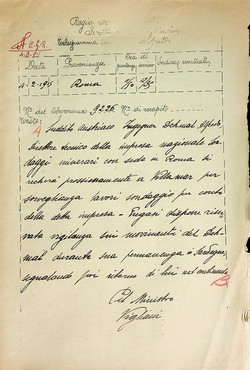 4-2-915
Data Provenienza Ora di
4-2-1915 Roma
N° del telegramma 9226 N° di recapito
Testo:
A Suddito austriaco Ingegner Dchmal Alfred
Direttore tecnico della impresa nazionale son-
daggi minerari con sede in Roma si
recherà prossimamente a Villamar per
sorveglianza lavori sondaggio per conto
della detta impresa - Pregasi disporre riser-
vata vigilanza sui movimenti del Dch-
mal durante sua permanenza in Sardegna
segnalando poi ritorno di lui nel continente B
Pel Ministro
Vigliani